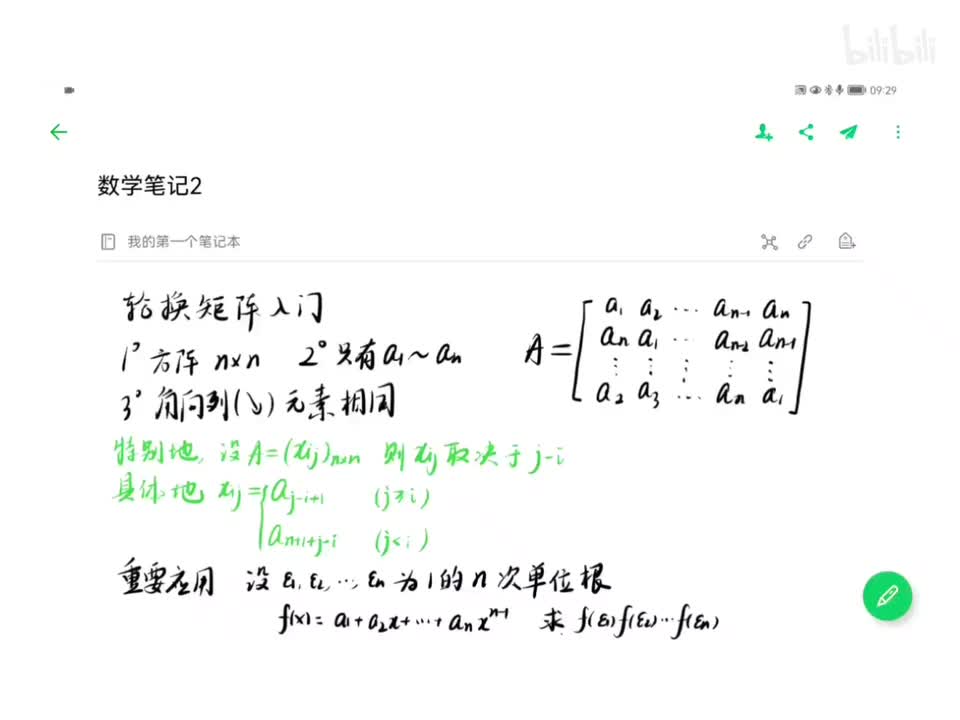 bilibili
09:29
数学笔记2
我的第一个笔记本
轮换矩阵入门
1° 方阵 n×n 2° 只有a₁~aₙ
3° 角向列(↘) 元素相同
A = [a₁ a₂ ⋯ aₙ₋₁ aₙ
aₙ a₁ ⋯ aₙ₋₂ aₙ₋₁
⋮ ⋮ ⋮ ⋮ ⋮
a₂ a₃ ⋯ aₙ a₁]
特别地, 设A=(xᵢⱼ)ₙₓₙ 则xᵢⱼ取决于j-i
具体地 xᵢⱼ={aⱼ₋ᵢ₊₁ (j≥i)
aₙ₊₁₊ⱼ₋ᵢ (j<i)
重要应用 设 ε₁, ε₂, ⋯, εₙ 为1的n次单位根
f(x)=a₁+a₂x+⋯+aₙxⁿ⁻¹ 求 f(ε₁)f(ε₂)⋯f(εₙ)